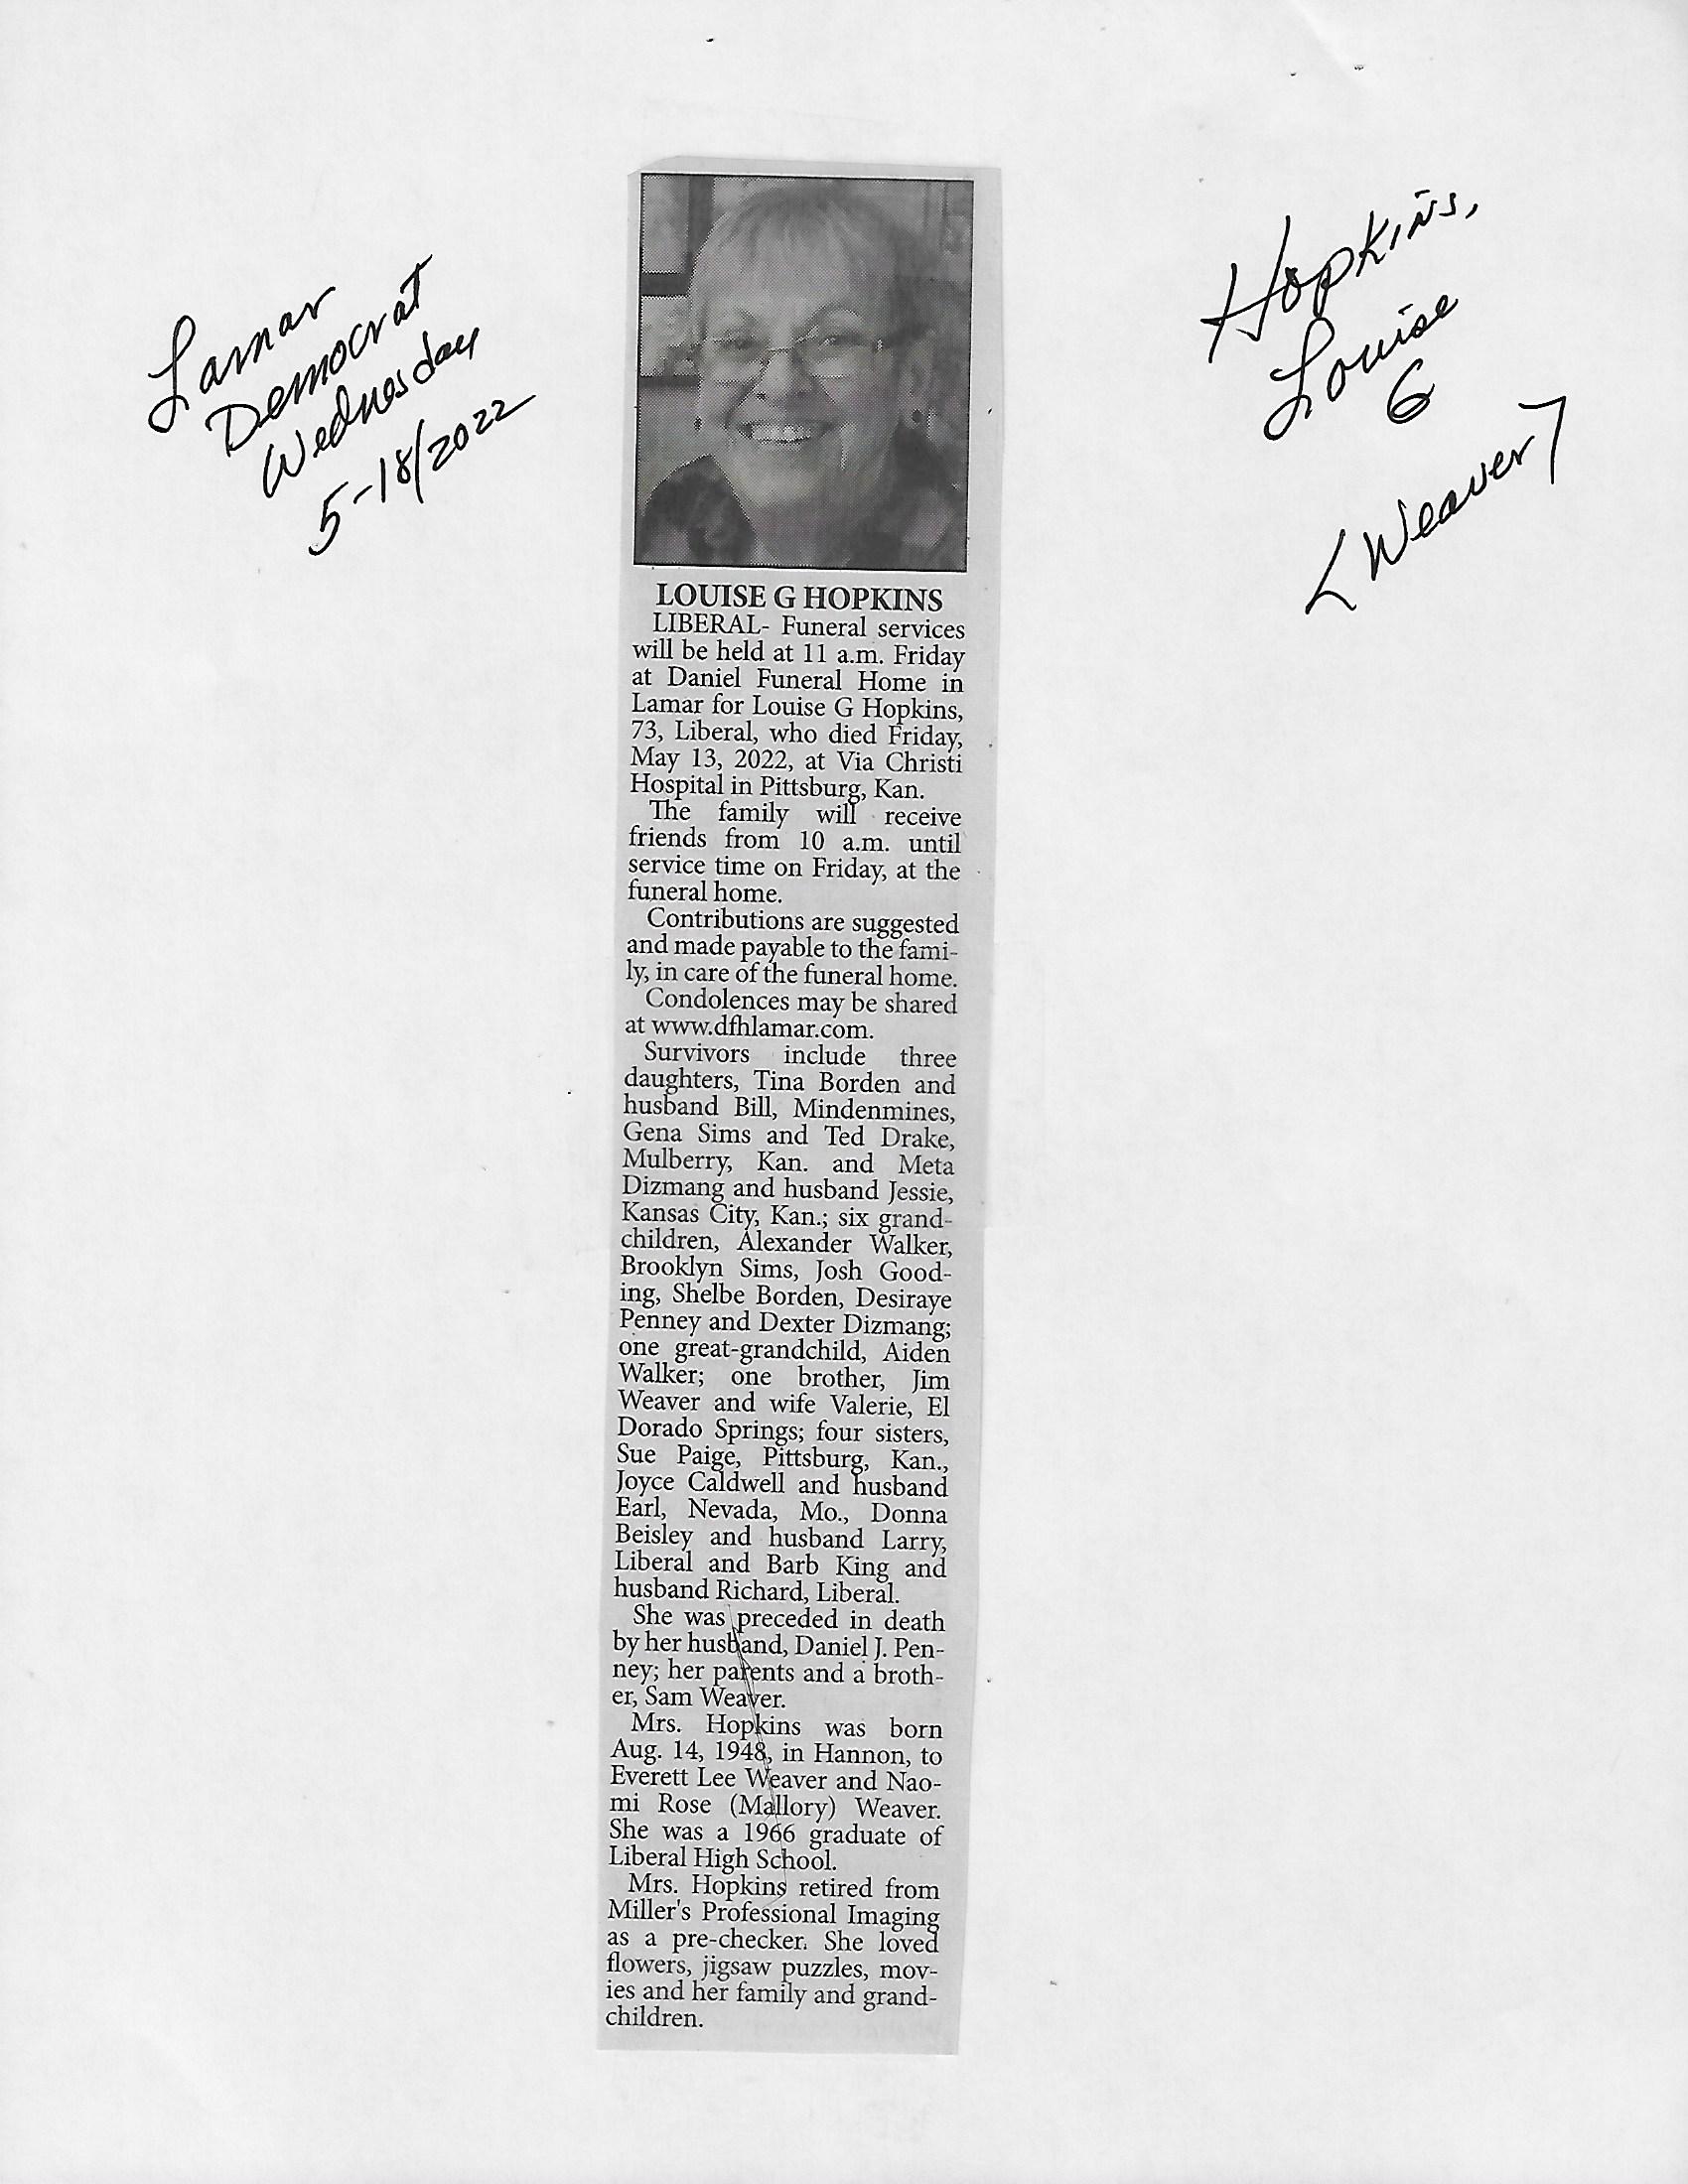 Lamar
Democrat
Wednesday
5-18/2022
Hopkins,
Louise
G
<Weaver>
LOUISE G HOPKINS
LIBERAL- Funeral services
will be held at 11 a.m. Friday
at Daniel Funeral Home in
Lamar for Louise G Hopkins,
73, Liberal, who died Friday,
May 13, 2022, at Via Christi
Hospital in Pittsburg, Kan.
The family will receive
friends from 10 a.m. until
service time on Friday, at the
funeral home.
Contributions are suggested
and made payable to the fami-
ly, in care of the funeral home.
Condolences may be shared
at www.dfhlamar.com.
Survivors include three
daughters, Tina Borden and
husband Bill, Mindenmines,
Gena Sims and Ted Drake,
Mulberry, Kan. and Meta
Dizmang and husband Jessie,
Kansas City, Kan.; six grand-
children, Alexander Walker,
Brooklyn Sims, Josh Good-
ing, Shelbe Borden, Desiraye
Penney and Dexter Dizmang;
one great-grandchild, Aiden
Walker; one brother, Jim
Weaver and wife Valerie, El
Dorado Springs; four sisters,
Sue Paige, Pittsburg, Kan.,
Joyce Caldwell and husband
Earl, Nevada, Mo., Donna
Beisley and husband Larry,
Liberal and Barb King and
husband Richard, Liberal.
She was preceded in death
by her husband, Daniel J. Pen-
ney; her parents and a broth-
er, Sam Weaver.
Mrs. Hopkins was born
Aug. 14, 1948, in Hannon, to
Everett Lee Weaver and Nao-
mi Rose (Mallory) Weaver.
She was a 1966 graduate of
Liberal High School.
Mrs. Hopkins retired from
Miller's Professional Imaging
as a pre-checker. She loved
flowers, jigsaw puzzles, mov-
ies and her family and grand-
children.